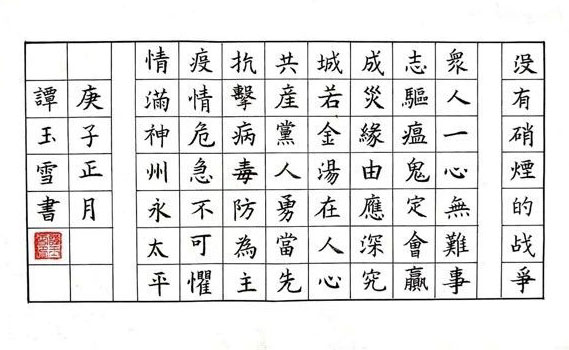 没有硝煙的战爭
衆人一心無難事
志驅瘟鬼定會贏
成災緣由應深究
城若金湯在人心
共産黨人勇當先
抗擊病毒防為主
疫情危急不可懼
情滿神州永太平
庚子正月
譚玉雪書